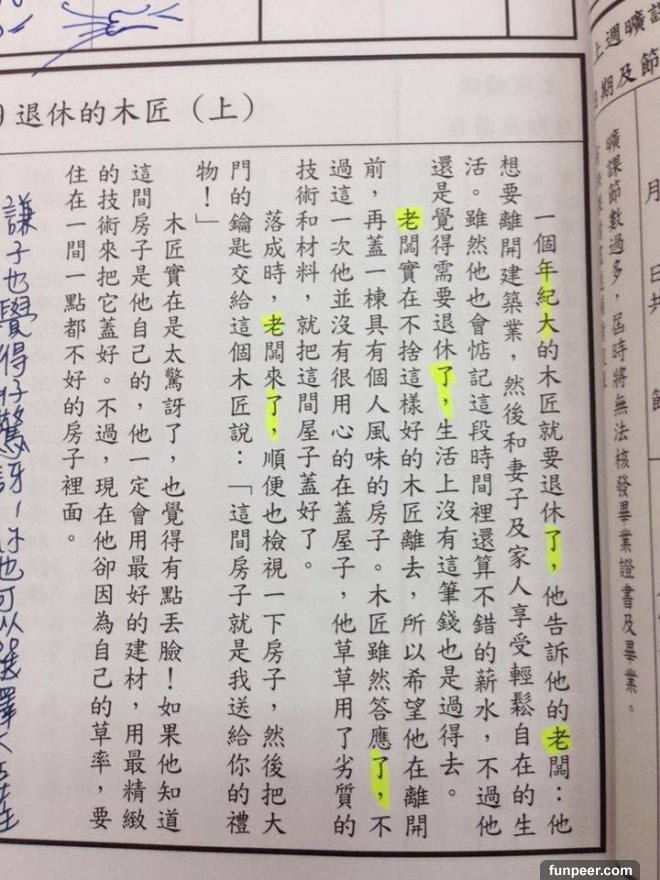 上週曠課
日期及節
月 日共 節
曠課節數過多，屆時將無法核發畢業證書及畢業。
退休的木匠（上）
一個年紀大的木匠就要退休了，他告訴他的老闆：他
想要離開建築業，然後和妻子及家人享受輕鬆自在的生
活。雖然他也會惦記這段時間裡還算不錯的薪水，不過他
還是覺得需要退休了，生活上沒有這筆錢也是過得去。
老闆實在不捨這樣好的木匠離去，所以希望他在離開
前，再蓋一棟具有個人風味的房子。木匠雖然答應了，不
過這一次他並沒有很用心的在蓋屋子，他草草用了劣質的
技術和材料，就把這間屋子蓋好了。
落成時，老闆來了，順便也檢視一下房子，然後把大
門的鑰匙交給這個木匠說：「這間房子就是我送給你的禮
物！」
木匠實在是太驚訝了，也覺得有點丟臉！如果他知道
這間房子是他自己的，他一定會用最好的建材，用最精緻
的技術來把它蓋好。不過，現在他卻因為自己的草率，要
住在一間一點都不好的房子裡面。
謙子也覺得好驚訝！你也可以選擇
funpeer.com